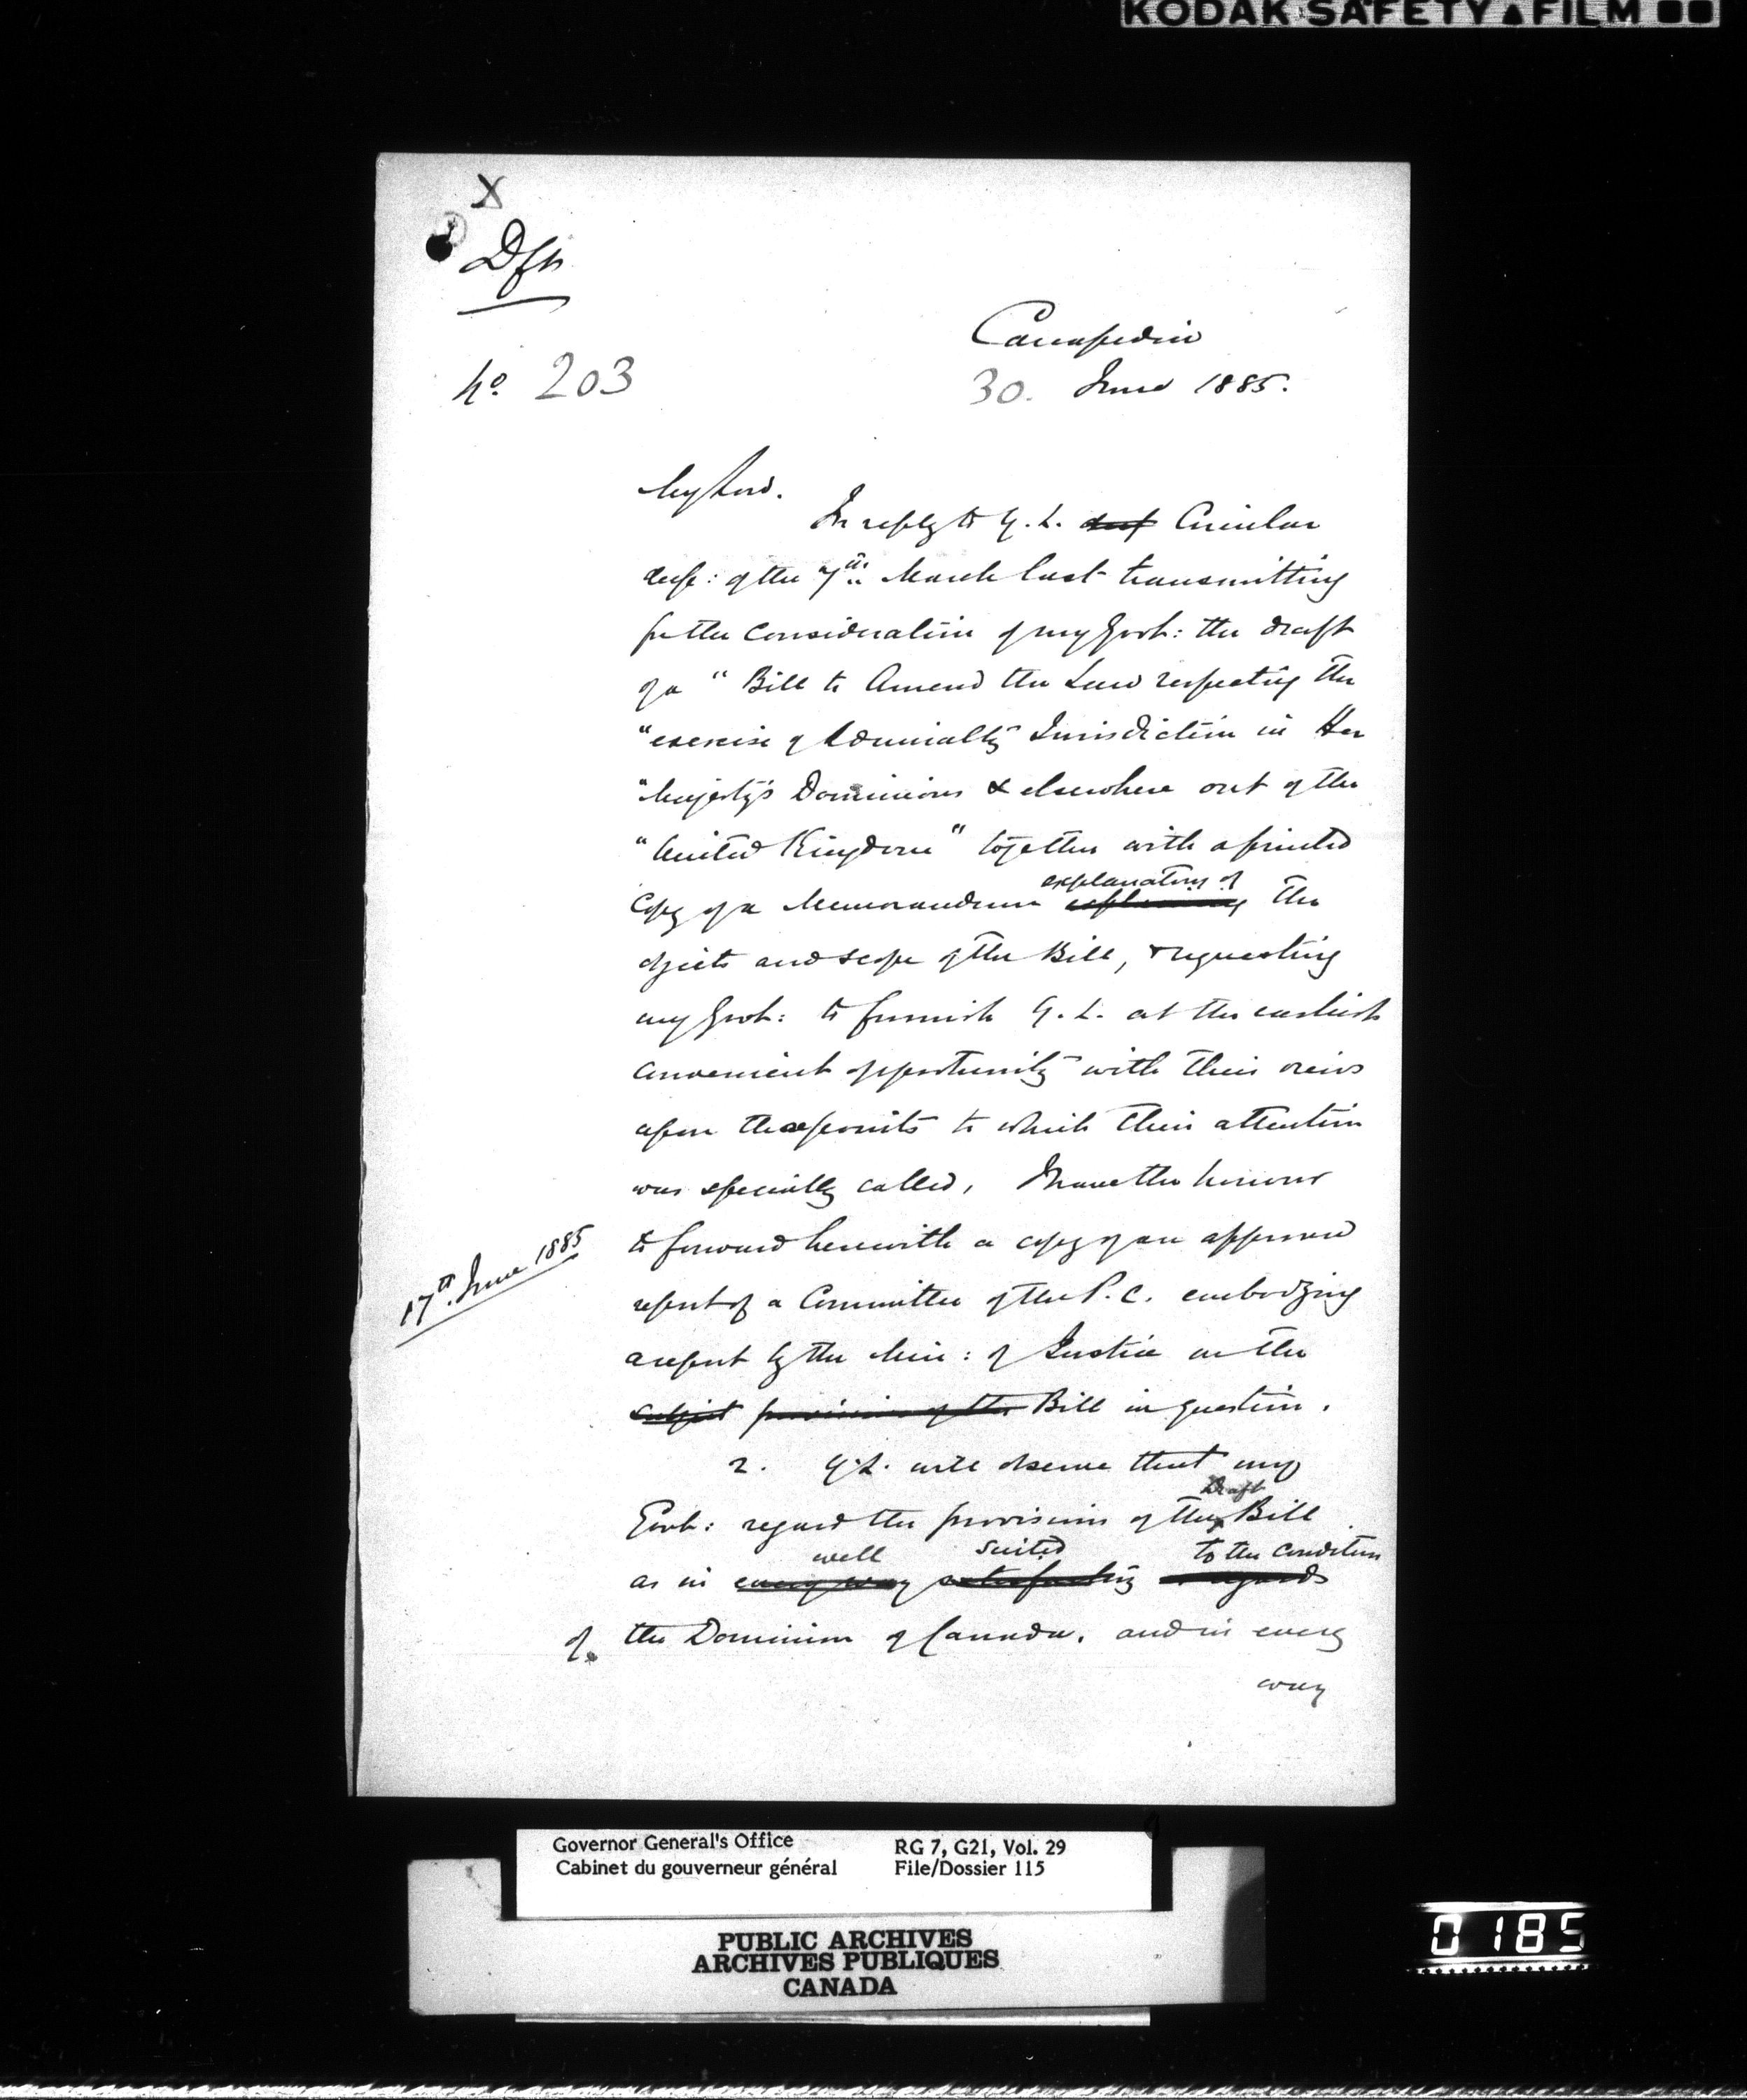 KODAK SAFETY FILM
X
Dft
No. 203
Cascapedia
30. June 1885.
My Lord.
In reply to Y. L. desp Circular
desp: of the 7th March last transmitting
for the consideration of my Govt: the draft
of a "Bill to Amend the Law respecting the
"exercise of Admiralty Jurisdiction in Her
"Majesty's Dominions & elsewhere out of the
"United Kingdom" together with a printed
explanatory of
copy of a Memorandum explaining the
objects and scope of the Bill, & requesting
my Govt: to furnish Y. L. at the earliest
convenient opportunity with their views
upon those points to which their attention
was specially called, I have the honour
17th. June 1885
to forward herewith a copy of an approved
report of a Committee of the P. C. embodying
a report by the Min: of Justice on the
subject provisions of the Bill in question.
2. Y. L. will observe that my
Draft
Govt: regard the provisions of the Bill
well suited to the condition
as in every way satisfactory as regards
of the Dominion of Canada. and in every
way
Governor General's Office
Cabinet du gouverneur général
RG 7, G21, Vol. 29
File/Dossier 115
PUBLIC ARCHIVES
ARCHIVES PUBLIQUES
CANADA
0185